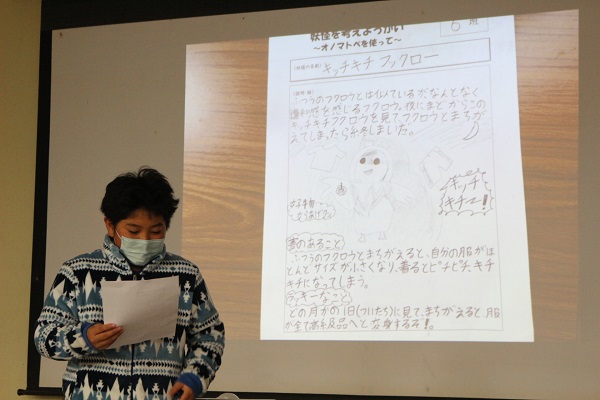 妖怪を考えようかい
～オノマトペを使って～
5 班
キッチキチ フックロー
ふつうのフクロウとは似ているが、なんとなく
違和感を感じるフクロウ。夜にまどからこの
キッチキチフクロウを見て、フクロウとまちが
えてしまったら終しまいだ。
キッチ
キチー!
好物
悪のあること
ふつうのフクロウとまちがえると、自分の服がほ
とんどサイズが小さくなり、着るとピチピチ、キチ
キチになってしまう。
ラッキーなこと
どの月かの1日(ついたち)に見て、まちがえると、服
が全て高級品へと変身するぞ!。